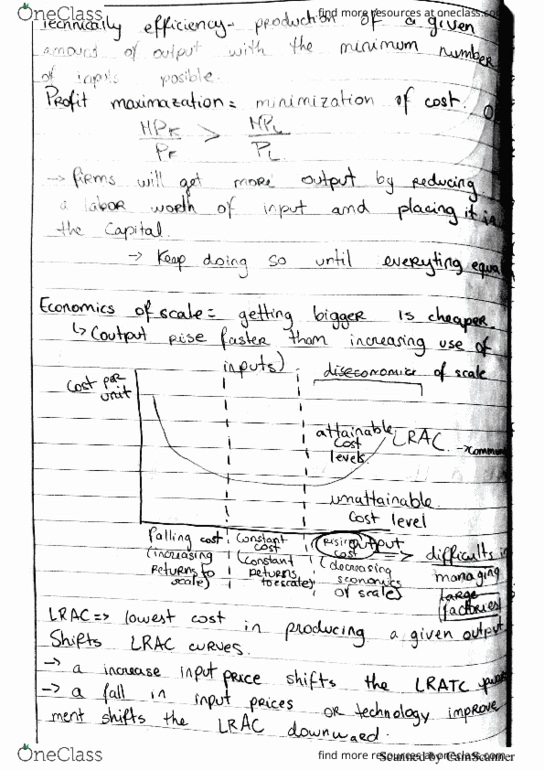 OneClass
find more resources at oneclass.com
Technically efficiency - production of a given
amount of output with the minimum number
of inputs posible.
Profit maximazation = minimization of cost.
MPK > MPL
PK PL
→ firms will get more output by reducing
a labor worth of input and placing it in
the Capital.
→ Keep doing so until everyting equa
Economics of scale = getting bigger is cheaper.
↳ (output rise faster than increasing use of
inputs).
diseconomics of scale
Cost per
unit
attainable
cost
levels.
LRAC.
unattainable
cost level
output
Falling cost
(increasing
returns to
scale)
Constant
cost
(constant
returns
to scale)
rising
cost
(decreasing
economics
of scale)
=> difficults in
managing
large
factories
LRAC => lowest cost in producing a given output
Shifts LRAC curves.
→ a increase input price shifts the LRATC
→ a fall in input prices or technology improve
ment shifts the LRAC downward.
OneClass
find more resources at oneclass.com
Scanned by CamScanner